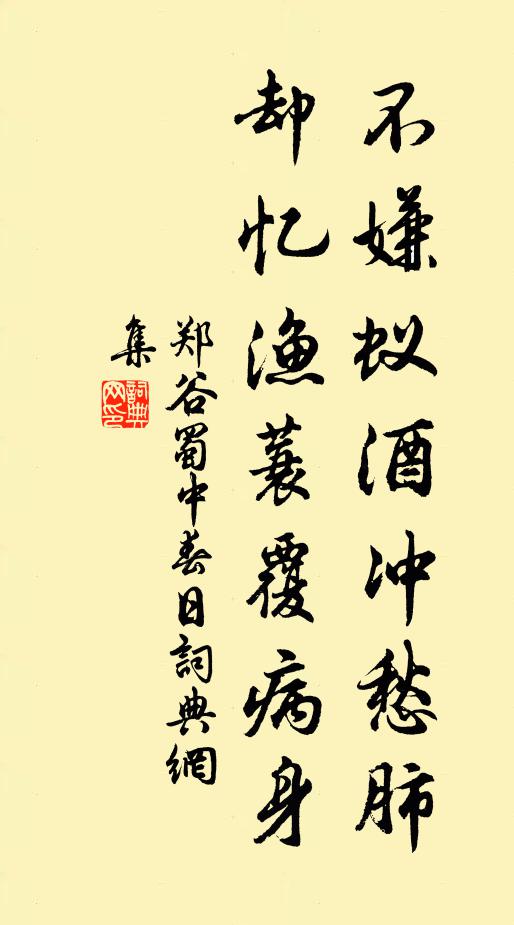 不嫌蚁酒冲愁肺
却忆渔蓑覆病身
郑谷蜀中春日詞典網
集
詞典
网印